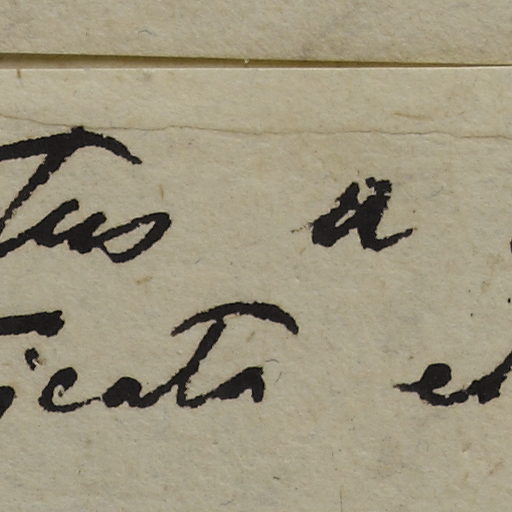 tus a
icata et